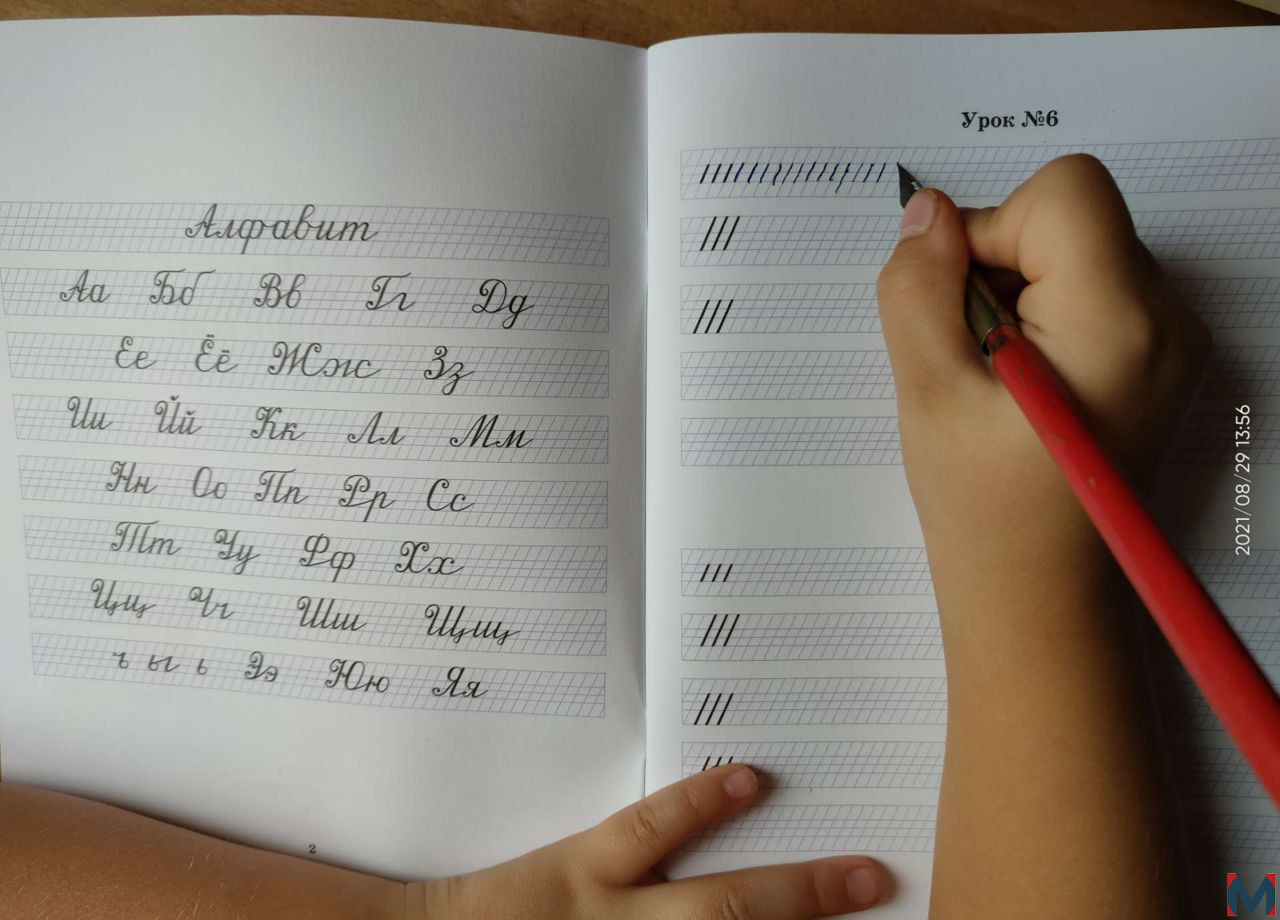 Алфавит
Аа Бб Вв Гг Дд
Ее Ёё Жж Зз
Ии Йй Кк Лл Мм
Нн Оо Пп Рр Сс
Тт Уу Фф Хх
Цц Чч Шш Щщ
ъ ы ь Ээ Юю Яя
2
Урок №6
2021/08/29 13:56
M